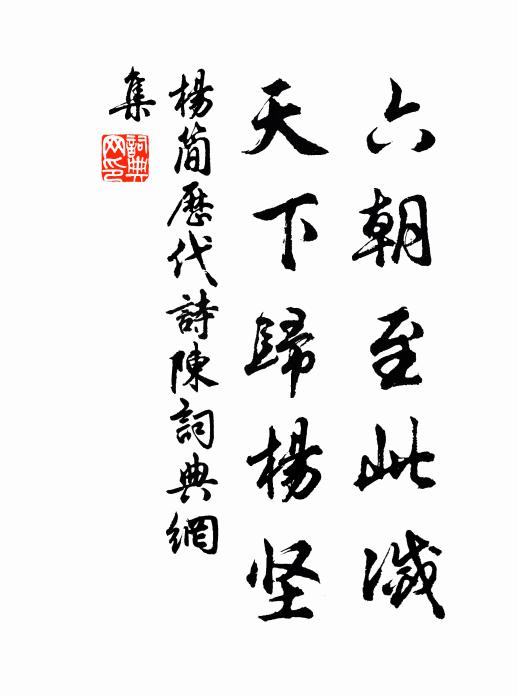 六朝至此滅
天下歸楊坚
楊簡歷代詩陳詞典網
集
詞典網印